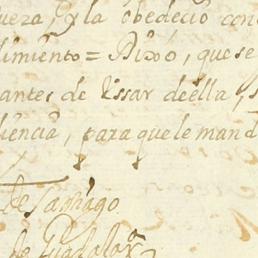 ueza, y la obedeció con
dimiento = Dixó, que se
antes de Vssar de ella, s
diencia, para que le mand
de Santiago
de Guadalaxª